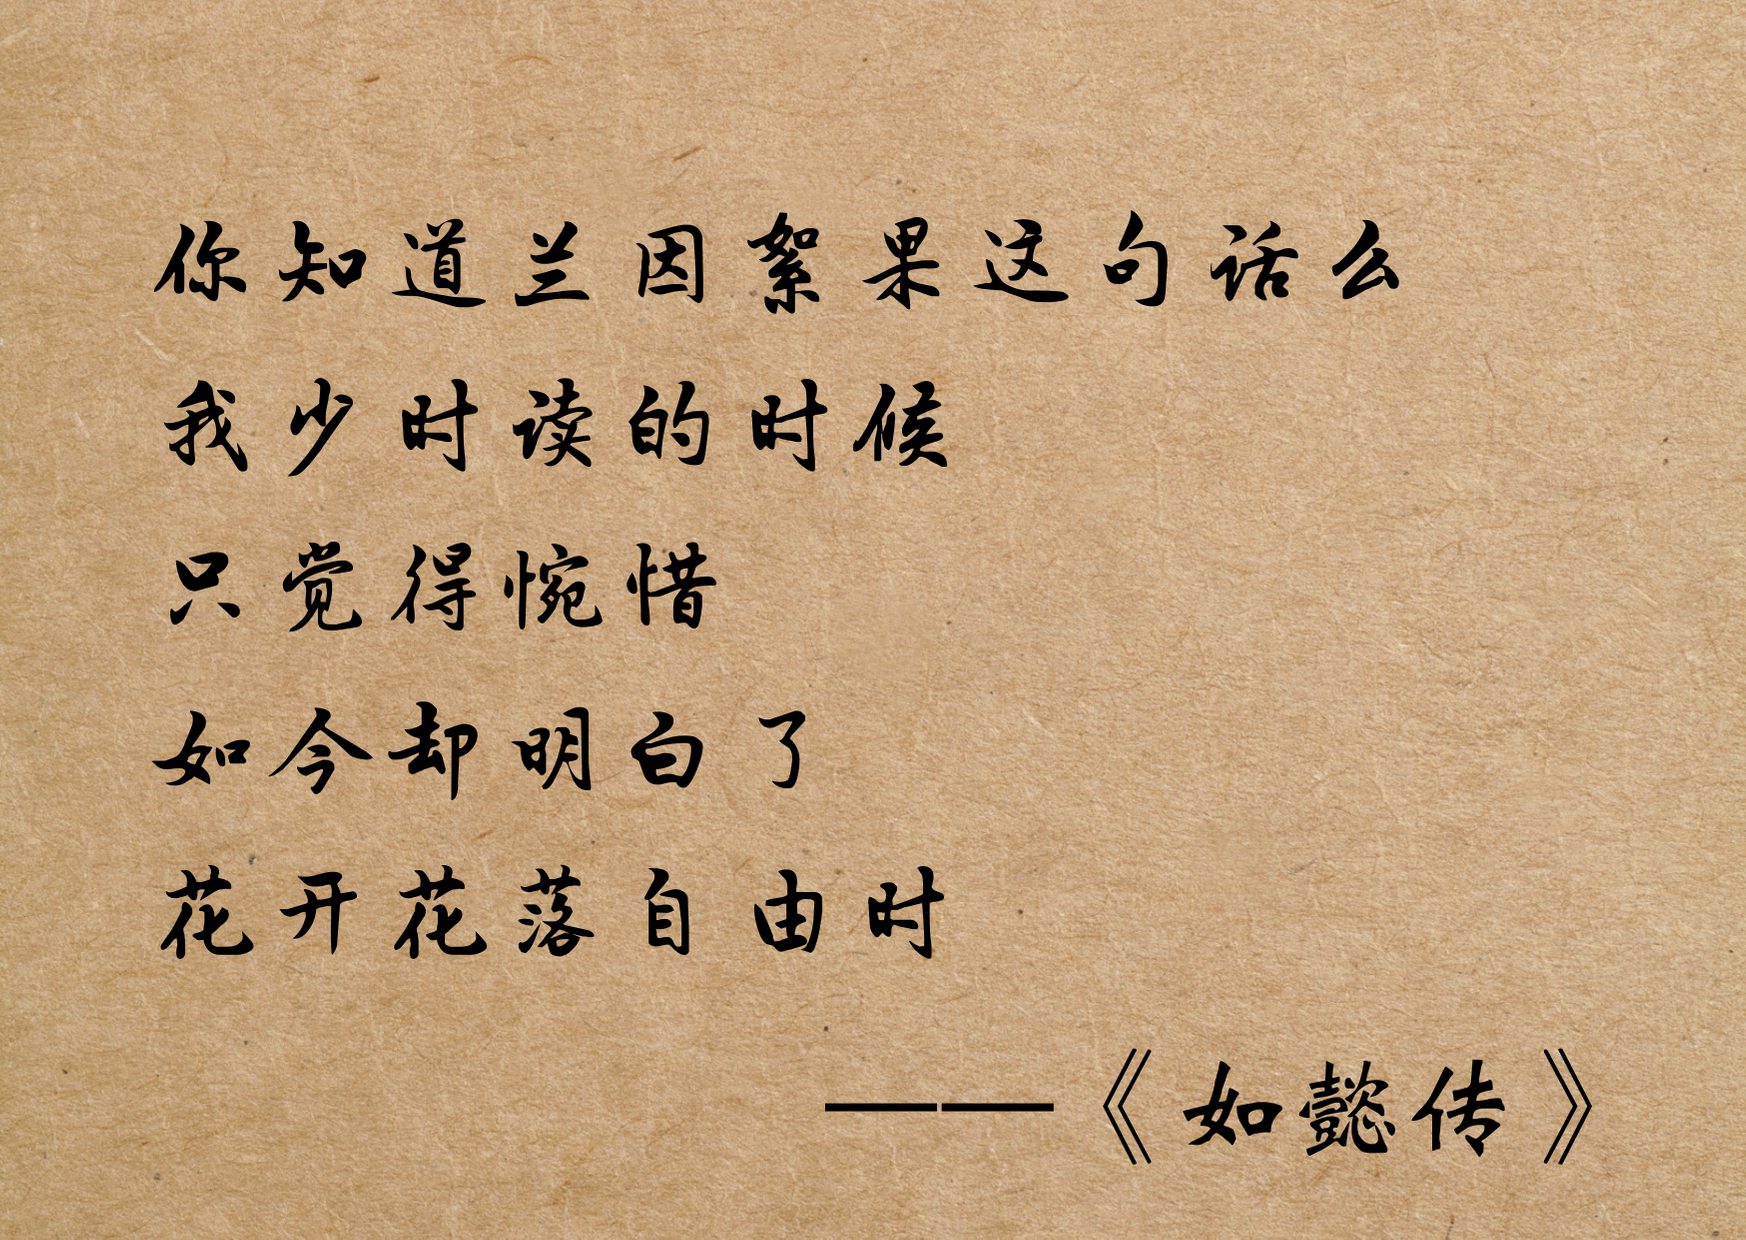 你知道兰因絮果这句话么
我少时读的时候
只觉得惋惜
如今却明白了
花开花落自由时
——《如懿传》